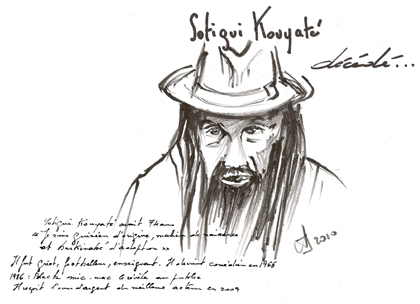 Sotigui Kouyaté
décédé...
Sotigui Kouyaté avait 74 ans
« Je suis guinéen d'origine, malien de naissance
et Burkinabé d'adoption »
Il fut griot, footballeur, enseignant. Il devient comédien en 1966
1986 : Black mic-mac le révèle au public
Il reçoit l'ours d'argent du meilleur acteur en 2009
2010